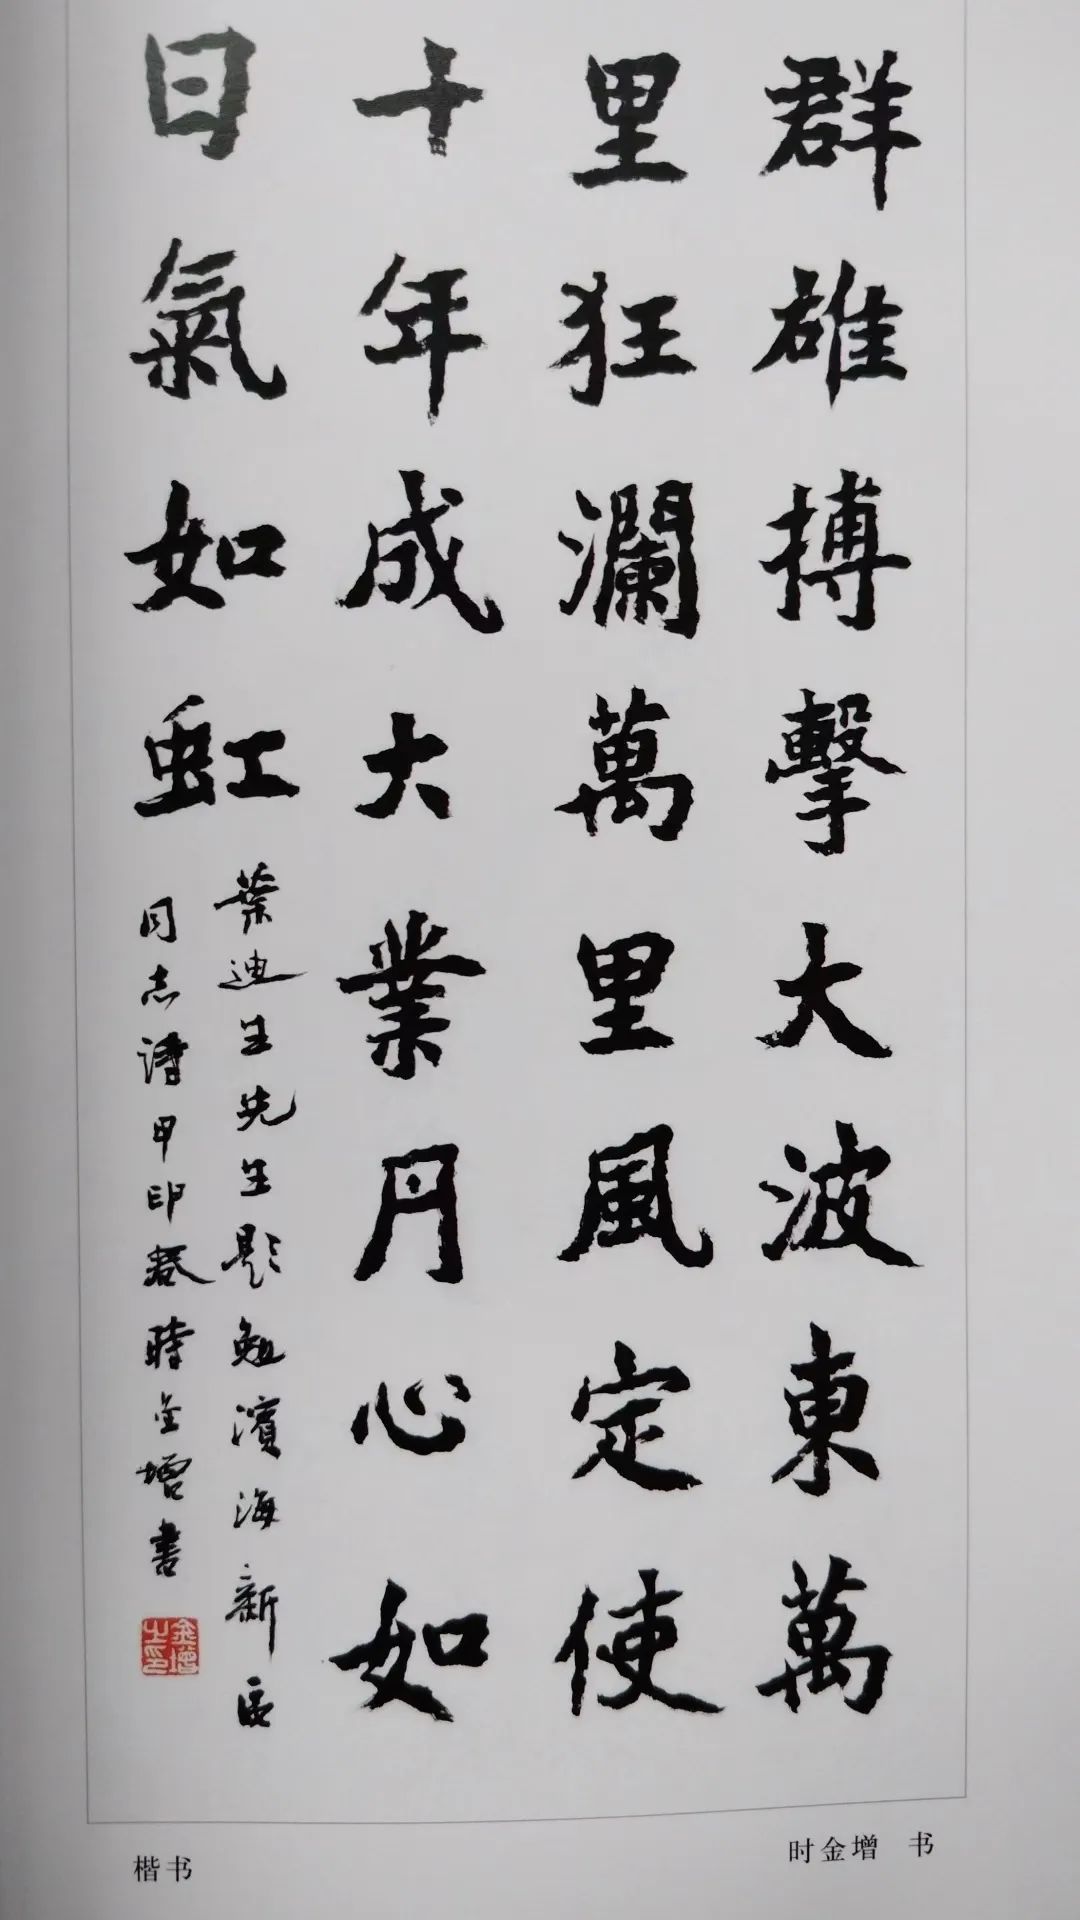 群雄搏擊大波東萬
里狂瀾萬里風定使
十年成大業丹心如
日氣如虹
葉迪生先生題勉濱海新區
同志詩甲午春時金增書
金增之印
楷书
时金增 书